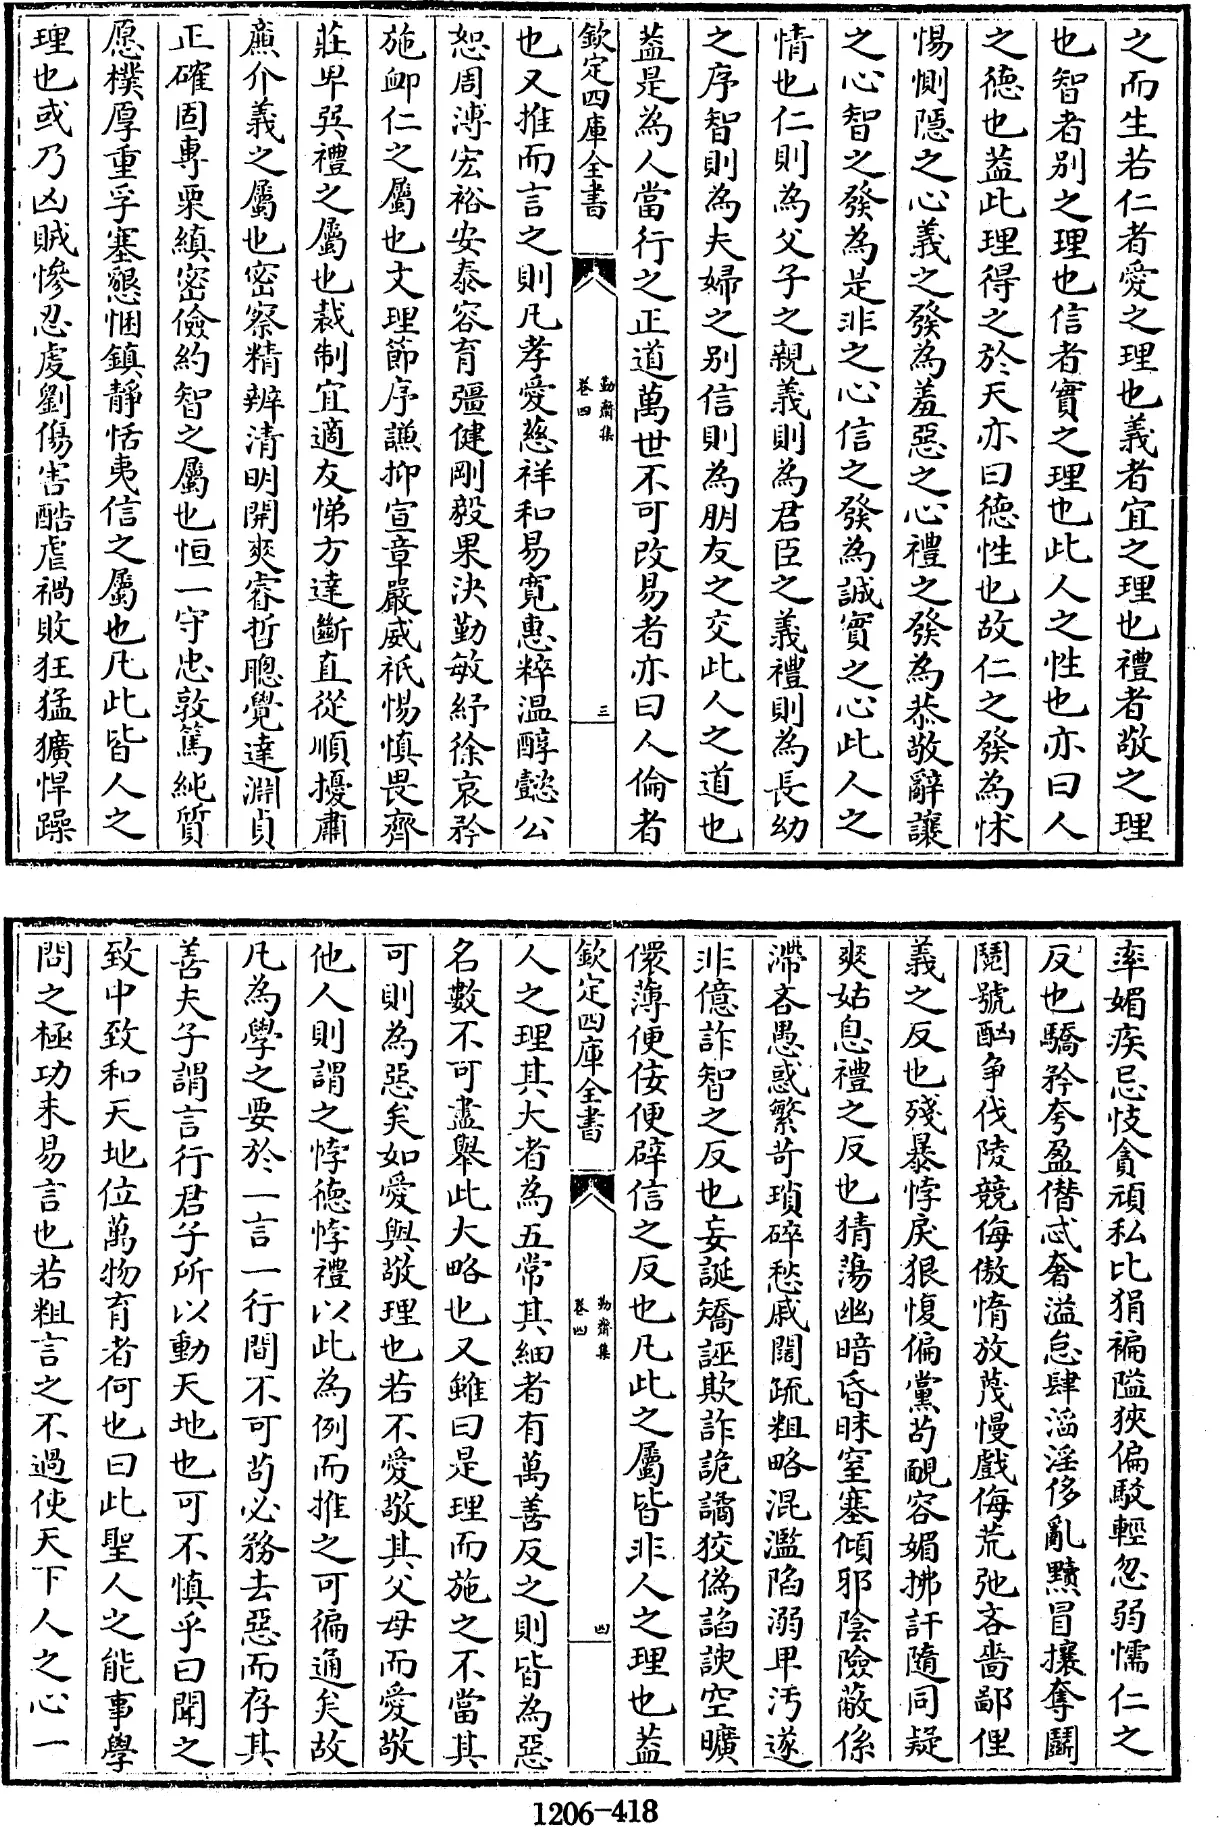 之而生若仁者愛之理也義者宜之理也禮者敬之理
也智者别之理也信者實之理也此人之性也亦曰人
之德也葢此理得之於天亦曰德性也故仁之發為怵
惕惻隱之心義之發為羞惡之心禮之發為恭敬辭讓
之心智之發為是非之心信之發為誠實之心此人之
情也仁則為父子之親義則為君臣之義禮則為長幼
之序智則為夫婦之别信則為朋友之交此人之道也
葢是為人當行之正道萬世不可改易者亦曰人倫者
欽定四庫全書
勤齋集
卷四
三
也又推而言之則凡孝愛慈祥和易寛惠粹温醇懿公
恕周溥宏裕安泰容育彊健剛毅果決勤敏紓徐哀矜
施卹仁之屬也文理節序謙抑宣章嚴威祇惕慎畏齊
莊卑巽禮之屬也裁制宜適友悌方達斷直從順擾肅
廉介義之屬也密察精辨清明開爽睿哲聰覺達淵貞
正確固專栗縝密儉約智之屬也恒一守忠敦篤純質
愿樸厚重孚塞懇悃鎮靜恬夷信之屬也凡此皆人之
理也或乃凶賊慘忍虔劉傷害酷虐禍敗狂猛獷悍躁
率媢疾忌忮貪頑私比狷褊隘狹偏駁輕忽弱懦仁之
反也驕矜夸盈僭忒奢溢怠肆滔淫侈亂黷冒攘奪鬭
鬩號酗争伐陵競侮傲惰放蔑慢戲侮荒弛吝嗇鄙俚
義之反也殘暴悖戾狠愎偏黨苟靦容媚拂訐隨同疑
爽姑息禮之反也猜蕩幽暗昏昧窒塞傾邪陰險蔽係
滯吝愚惑繁苛瑣碎愁戚闊疏粗略混濫陷溺卑汚遂
非億詐智之反也妄誕矯誣欺詐詭譎狡偽諂諛空曠
儇薄便佞便辟信之反也凡此之屬皆非人之理也葢
欽定四庫全書
勤齋集
卷四
四
人之理其大者為五常其細者有萬善反之則皆為惡
名數不可盡舉此大略也又雖曰是理而施之不當其
可則為惡矣如愛與敬理也若不愛敬其父母而愛敬
他人則謂之悖德悖禮以此為例而推之可徧通矣故
凡為學之要於一言一行間不可苟必務去惡而存其
善夫子謂言行君子所以動天地也可不慎乎曰聞之
致中致和天地位萬物育者何也曰此聖人之能事學
問之極功未易言也若粗言之不過使天下人之心一
1206-418